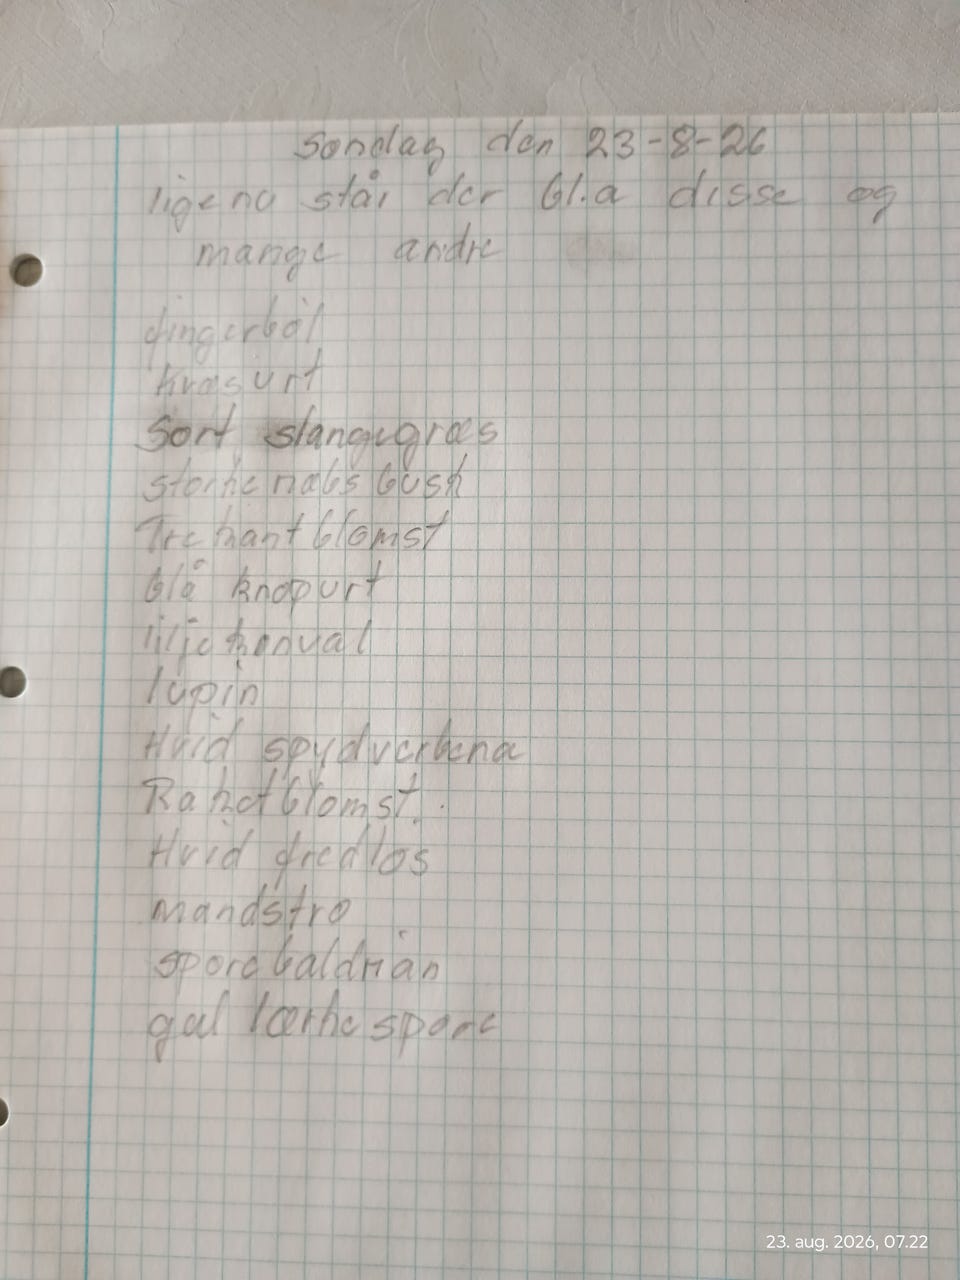 Søndag den 23-8-26
ligenu står der bl.a disse og
mange andre
fingerbøl
kræsurt
Sort slangegræs
storkenæbs busk
Trekantblomst
blå knopurt
liljekonval
lupin
Hvid spydverbena
Raketblomst.
Hvid fredløs
mandstro
sporebaldrian
gul lærkespore
23. aug. 2026, 07.22